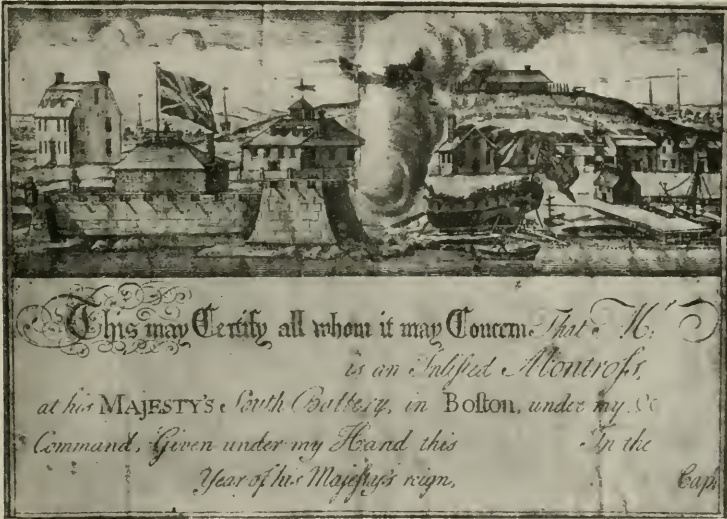 This may Certify all whom it may Concern That Mr.
is an Inlisted Montross,
at his MAJESTY'S South Battery, in Boston, under my
Command. Given under my Hand this In the
Year of his Majesty's reign,
Capt